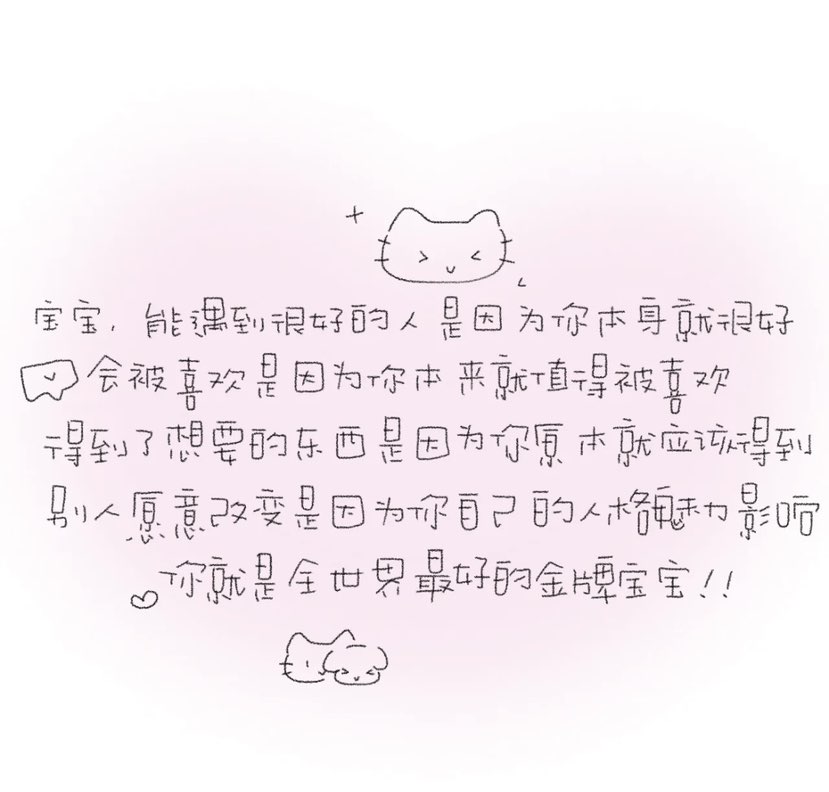 宝宝,能遇到很好的人是因为你本身就很好
会被喜欢是因为你本来就值得被喜欢
得到了想要的东西是因为你原本就应该得到
别人愿意改变是因为你自己的人格魅力影响
你就是全世界最好的金牌宝宝!!